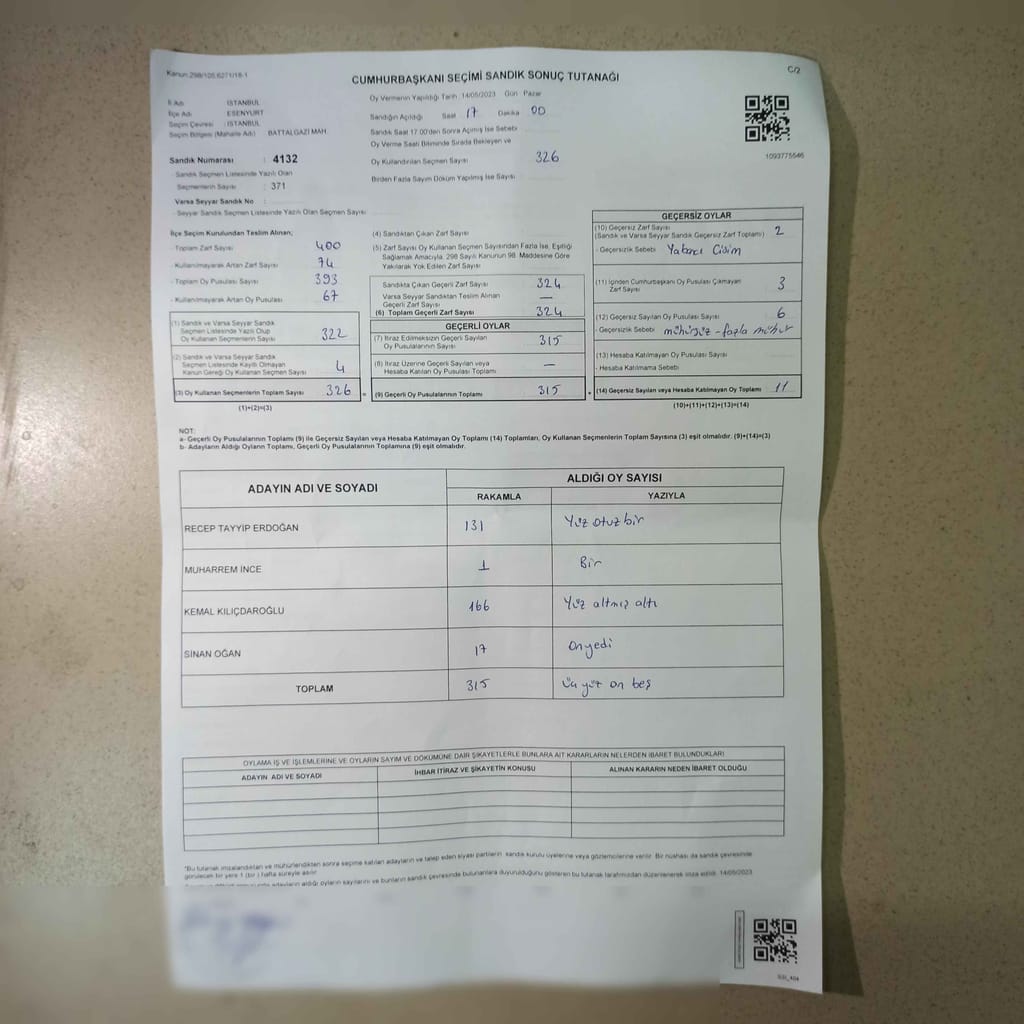 Kanun:298/105,6271/18-1
C/2
CUMHURBAŞKANI SEÇİMİ SANDIK SONUÇ TUTANAĞI
İl Adı : İSTANBUL
İlçe Adı : ESENYURT
Seçim Çevresi : İSTANBUL
Seçim Bölgesi (Mahalle Adı) : BATTALGAZİ MAH.
Sandık Numarası : 4132
Sandık Seçmen Listesinde Yazılı Olan
Seçmenlerin Sayısı : 371
Varsa Seyyar Sandık No :
- Seyyar Sandık Seçmen Listesinde Yazılı Olan Seçmen Sayısı
Oy Vermenin Yapıldığı Tarih: 14/05/2023 Gün: Pazar
Sandığın Açıldığı Saat 17 Dakika 00
Sandık Saat 17.00'den Sonra Açılmış İse Sebebi
Oy Verme Saati Bitiminde Sırada Bekleyen ve
Oy Kullandırılan Seçmen Sayısı 326
Birden Fazla Sayım Döküm Yapılmış İse Sayısı
1093775546
İlçe Seçim Kurulundan Teslim Alınan;
- Toplam Zarf Sayısı 400
- Kullanılmayarak Artan Zarf Sayısı 74
- Toplam Oy Pusulası Sayısı 393
- Kullanılmayarak Artan Oy Pusulası 67
(1) Sandık ve Varsa Seyyar Sandık
Seçmen Listesinde Yazılı Olup
Oy Kullanan Seçmenlerin Sayısı 322
(2) Sandık ve Varsa Seyyar Sandık
Seçmen Listesinde Kayıtlı Olmayan
Kanun Gereği Oy Kullanan Seçmen Sayısı 4
(3) Oy Kullanan Seçmenlerin Toplam Sayısı 326 =
(1)+(2)=(3)
(4) Sandıktan Çıkan Zarf Sayısı
(5) Zarf Sayısı Oy Kullanan Seçmen Sayısından Fazla İse, Eşitliği
Sağlamak Amacıyla, 298 Sayılı Kanunun 98. Maddesine Göre
Yakılarak Yok Edilen Zarf Sayısı
Sandıkta Çıkan Geçerli Zarf Sayısı 324
Varsa Seyyar Sandıktan Teslim Alınan
Geçerli Zarf Sayısı —
(6) Toplam Geçerli Zarf Sayısı 324
GEÇERLİ OYLAR
(7) İtiraz Edilmeksizin Geçerli Sayılan
Oy Pusulalarının Sayısı 315
(8) İtiraz Üzerine Geçerli Sayılan veya
Hesaba Katılan Oy Pusulası Toplamı —
(9) Geçerli Oy Pusulalarının Toplamı 315
GEÇERSİZ OYLAR
(10) Geçersiz Zarf Sayısı
(Sandık ve Varsa Seyyar Sandık Geçersiz Zarf Toplamı) 2
- Geçersizlik Sebebi Yabancı Cisim
(11) İçinden Cumhurbaşkanı Oy Pusulası Çıkmayan
Zarf Sayısı 3
(12) Geçersiz Sayılan Oy Pusulası Sayısı 6
- Geçersizlik Sebebi mühürsüz - fazla mühür
(13) Hesaba Katılmayan Oy Pusulası Sayısı
- Hesaba Katılmama Sebebi
+ (14) Geçersiz Sayılan veya Hesaba Katılmayan Oy Toplamı 11
(10)+(11)+(12)+(13)=(14)
NOT:
a- Geçerli Oy Pusulalarının Toplamı (9) ile Geçersiz Sayılan veya Hesaba Katılmayan Oy Toplamı (14) Toplamları, Oy Kullanan Seçmenlerin Toplam Sayısına (3) eşit olmalıdır. (9)+(14)=(3)
b- Adayların Aldığı Oyların Toplamı, Geçerli Oy Pusulalarının Toplamına (9) eşit olmalıdır.
ADAYIN ADI VE SOYADI
ALDIĞI OY SAYISI
RAKAMLA YAZIYLA
RECEP TAYYİP ERDOĞAN 131 Yüz otuz bir
MUHARREM İNCE 1 Bir
KEMAL KILIÇDAROĞLU 166 Yüz altmış altı
SİNAN OĞAN 17 onyedi
TOPLAM 315 üç yüz on beş
OYLAMA İŞ VE İŞLEMLERİNE VE OYLARIN SAYIM VE DÖKÜMÜNE DAİR ŞİKAYETLERLE BUNLARA AİT KARARLARIN NELERDEN İBARET BULUNDUKLARI
ADAYIN ADI VE SOYADI İHBAR İTİRAZ VE ŞİKAYETİN KONUSU ALINAN KARARIN NEDEN İBARET OLDUĞU
*Bu tutanak imzalandıktan ve mühürlendikten sonra seçime katılan adayların ve talep eden siyasi partilerin sandık kurulu üyelerine veya gözlemcilerine verilir. Bir nüshası da sandık çevresinde
görülecek bir yere 1 (bir) hafta süreyle asılır.
adayların aldığı oyların sayılarını ve bunların sandık çevresinde bulunanlara duyurulduğunu gösteren bu tutanak tarafımızdan düzenlenerek imza edildi. 14/05/2023